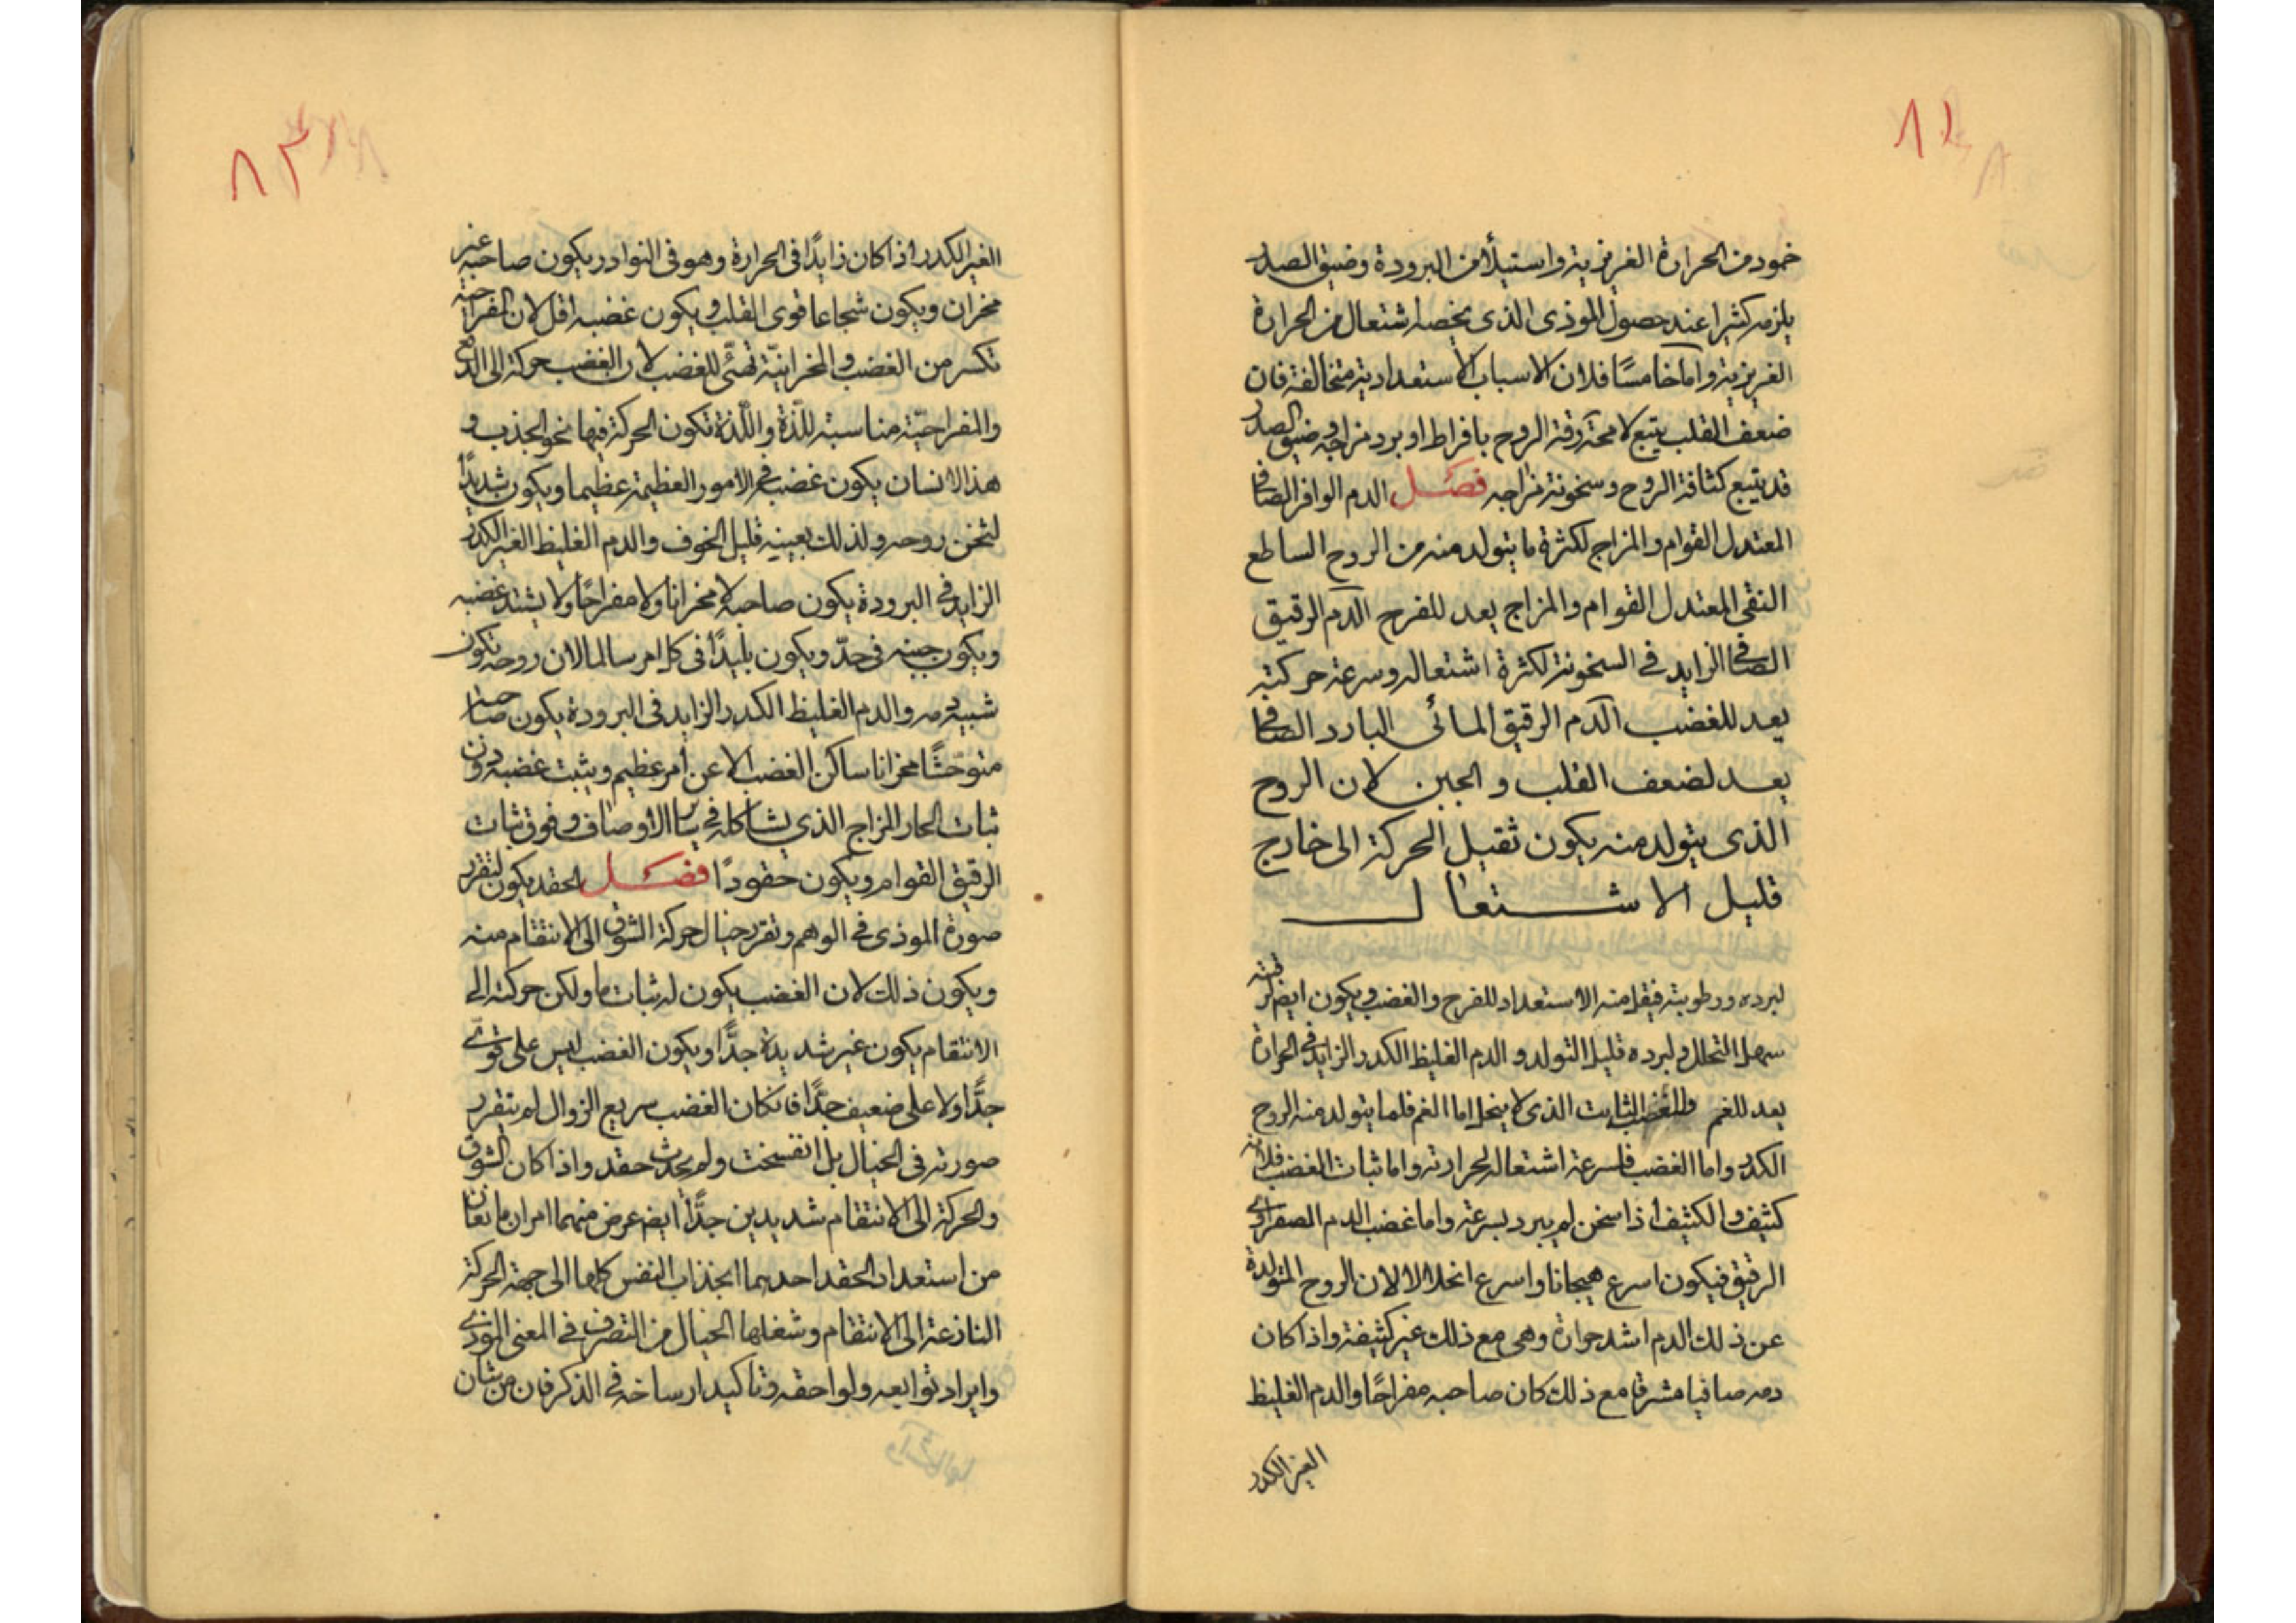 ٨٢
خمود من الحرارة الغريزية واستيلأ من البرودة وضيق الصدر
يلزمه كثيرا عند حصول الموذى الذى يخصه اشتعال من الحرارة
الغريزية واما خامسًا فلان الاسباب الاستعدادية متخالفة فان
ضعف القلب يتبع لا محة رقة الروح بافراط او برد مزاجه وضيق الصدر
قد يتبع كثافة الروح وسخونة مزاجه فصل الدم الوافر الصافى
المعتدل القوام والمزاج لكثرة ما يتولد منه من الروح الساطع
النقى المعتدل القوام والمزاج يعد للفرح الدم الرقيق
الصافى الزايد فى السخونة لكثرة اشتعاله وسرعة حركته
يعد للغضب الدم الرقيق المائى البارد الصافى
يعد لضعف القلب والجبن لان الروح
الذى يتولد منه يكون ثقيل الحركة الى خارج
قليل الاشتعال
لبرده ورطوبته فيقل منه الاستعداد للفرح والغضب ويكون ايضا لرقته
سهل التحلل ولبرده قليل التولد والدم الغليظ الكدر الزايد فى الحرارة
يعد للغم وللغضب الثابت الذى لا ينحل اما الغم فلما يتولد منه الروح
الكدر واما الغضب فلسرعة اشتعاله لحرارته واما ثبات الغضب فلانه
كثيف والكثيف اذا سخن لم يبرد بسرعة واما غضب الدم الصفراوى
الرقيق فيكون اسرع هيجانا واسرع انحلالا لان الروح المتولدة
عن ذلك الدم اشد حرارة وهى مع ذلك غير كثيفة واذا كان
دمه صافيا مشرقا مع ذلك كان صاحبه مفراحًا والدم الغليظ
الغير الكدر
٨٣
الغير الكدر اذا كان زايدًا فى الحرارة وهو فى النوادر يكون صاحبه غير
محزان ويكون شجاعا قوى القلب ويكون غضبه اقل لان المفراحية
تكسر من الغضب والمحزانيّة تهئى للغضب لان الغضب حركة الى الدفع
والمفراحيّة مناسبة للّذة واللّذة تكون الحركة فيها نحو الجذب و
هذا الانسان يكون غضبه فى الامور العظيمة عظيما ويكون شديدًا
لثخن روحه ولذلك بعينه قليل الخوف والدم الغليظ الغير الكدر
الزايد فى البرودة يكون صاحبه لا محزانا ولا مفراحًا ولا يشتد غضبه
ويكون جبنه فى حدّ ويكون بليدًا فى كل امر سالما لان روحه تكون
شبيه دمه والدم الغليظ الكدر الزايد فى البرودة يكون صاحبه
متوحّشًا محزانا ساكن الغضب الا عن امر عظيم ويثبت غضبه دون
ثبات الحار المزاج الذى يشاكله فى ساير الاوصاف وفوق ثبات
الرقيق القوام ويكون حقودًا فصل الحقد يكون لتقرر
صورة الموذى فى الوهم وتقرر خيال حركة الشوق الى الانتقام منه
ويكون ذلك لان الغضب يكون له ثبات ما ولكن حركته الى
الانتقام يكون غير شديدة جدًّا ويكون الغضب ليس على قوىّ
جدًّا ولا على ضعيف جدًّا فانكان الغضب سريع الزوال لم يتقرر
صورته فى الخيال بل انفسخت ولم يحدث حقد واذا كان الشوق
والحركة الى الانتقام شديدين جدًّا ايضا عرض منهما امران مانعان
من استعداد الحقد احديهما انجذاب النفس كلها الى جهة الحركة
النازعة الى الانتقام وشغلها الخيال من التصرف فى المعنى الموذى
وايراد توابعه ولواحقه وتاكيد ارساخه فى الذكر فان من شان